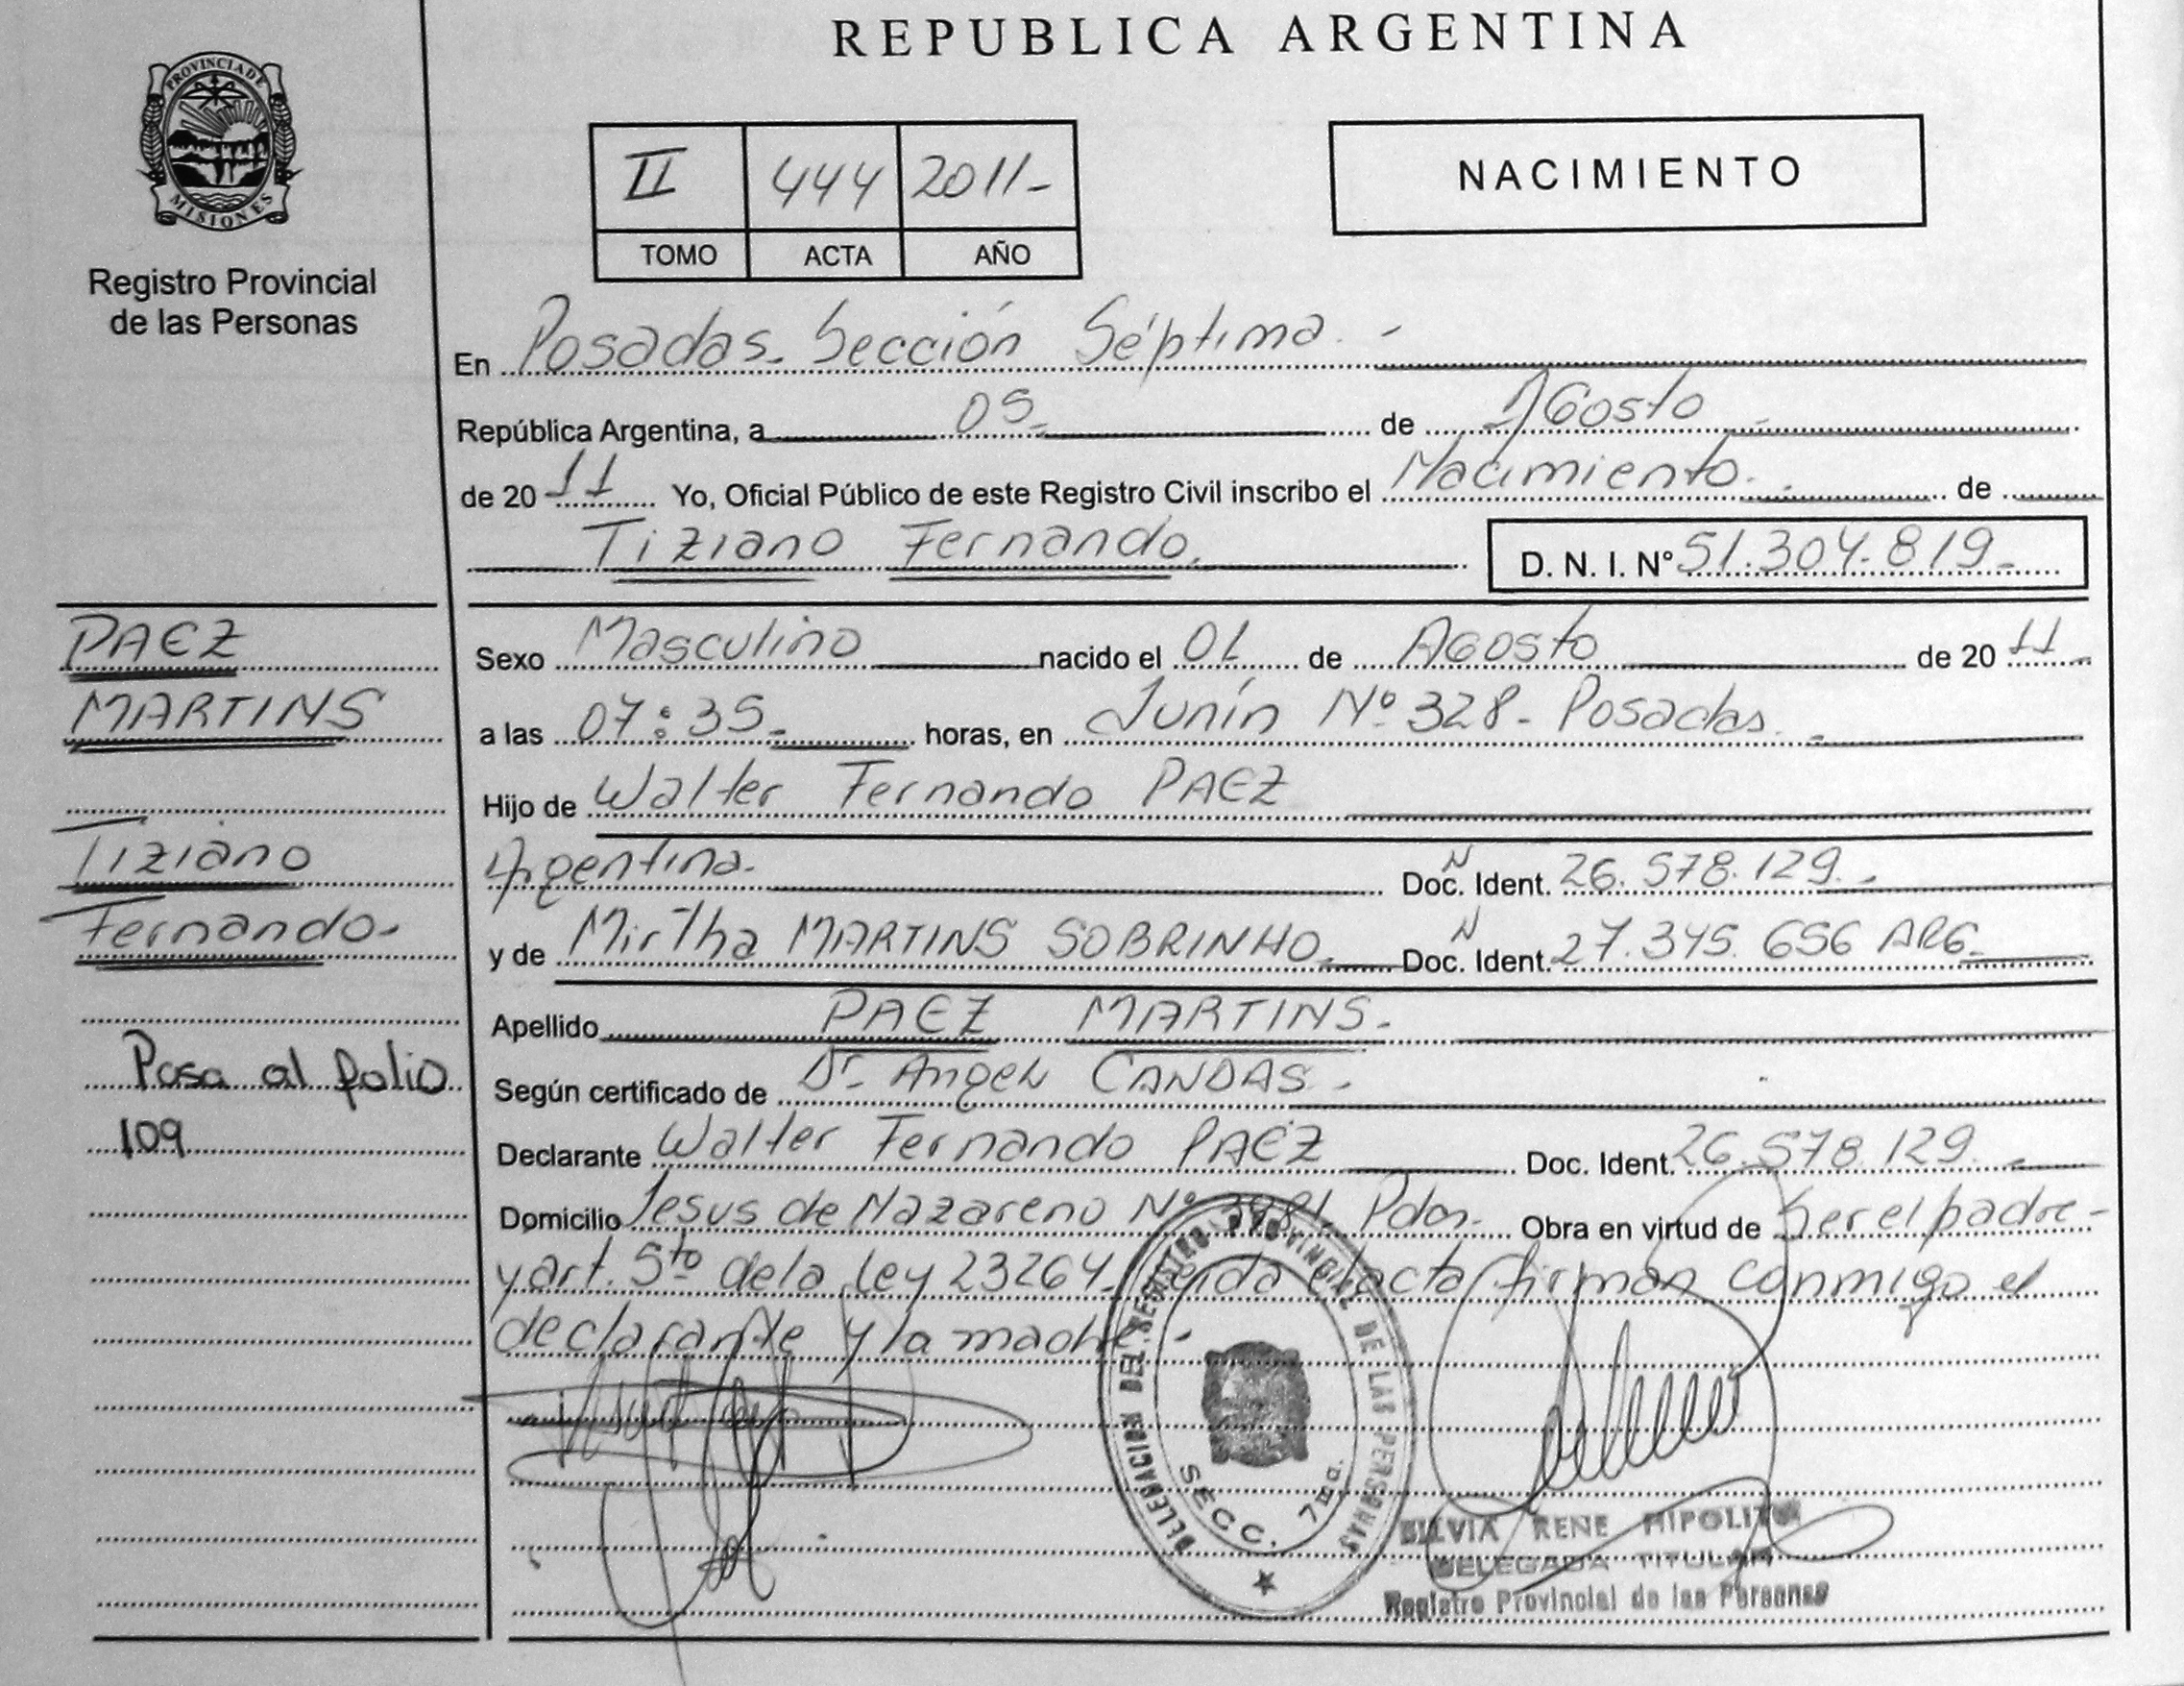 REPUBLICA ARGENTINA
PROVINCIA DE
MISIONES
Registro Provincial
de las Personas
II 444 2011-
TOMO ACTA AÑO
NACIMIENTO
En Posadas. Sección Séptima. -
República Argentina, a 05- de AGosto -
de 20 11 Yo, Oficial Público de este Registro Civil inscribo el Nacimiento. de
Tiziano Fernando. D. N. I. N° 51.304.819-
PAEZ
MARTINS
Tiziano
Fernando-
Pasa al folio
109
Sexo Masculino nacido el 01 de AGosto de 20 11
a las 07:35- horas, en Junín Nº 328- Posadas.
Hijo de Walter Fernando PAEZ
Argentina. Doc. Ident. N 26.578.129.-
y de Mirtha MARTINS SOBRINHO. Doc. Ident. N 27.345.656 ARG-
Apellido PAEZ MARTINS.-
Según certificado de Dr Angel CANDAS.-
Declarante Walter Fernando PAEZ Doc. Ident. 26.578.129.
Domicilio Jesus de Nazareno Nº Pdas.- Obra en virtud de Ser el padre-
y art. 5to de la Ley 23264. Leida el acta firman conmigo el
declarante y la madre.-
DELEGACION DEL REGISTRO PROVINCIAL DE LAS PERSONAS
SECC. 7ma.
SILVIA RENE HIPOLITO
DELEGADA TITULAR
Registro Provincial de las Personas